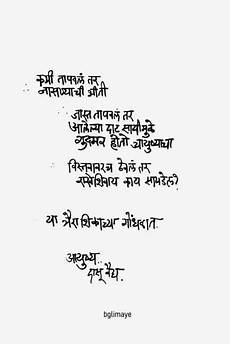 कमी तापवलं तर
नासण्याची भीती
जास्त तापवलं तर
आलेल्या दाट सायीमुळे
गुदमर होतो आयुष्याचा
विस्तवावरच ठेवलं तर
राखेशिवाय काय सापडेल?
या त्रैराशिकाच्या गोंधळात
आयुष्य..
दासू वैद्य.
bglimaye